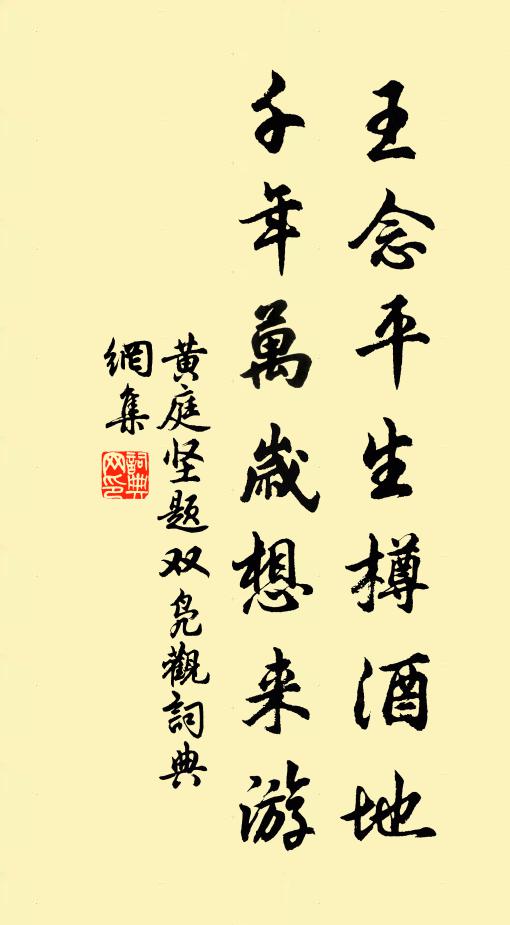 王念平生樽酒地
千年萬歲想来游
黄庭坚题双凫觀詞典
網集
詞典
网印